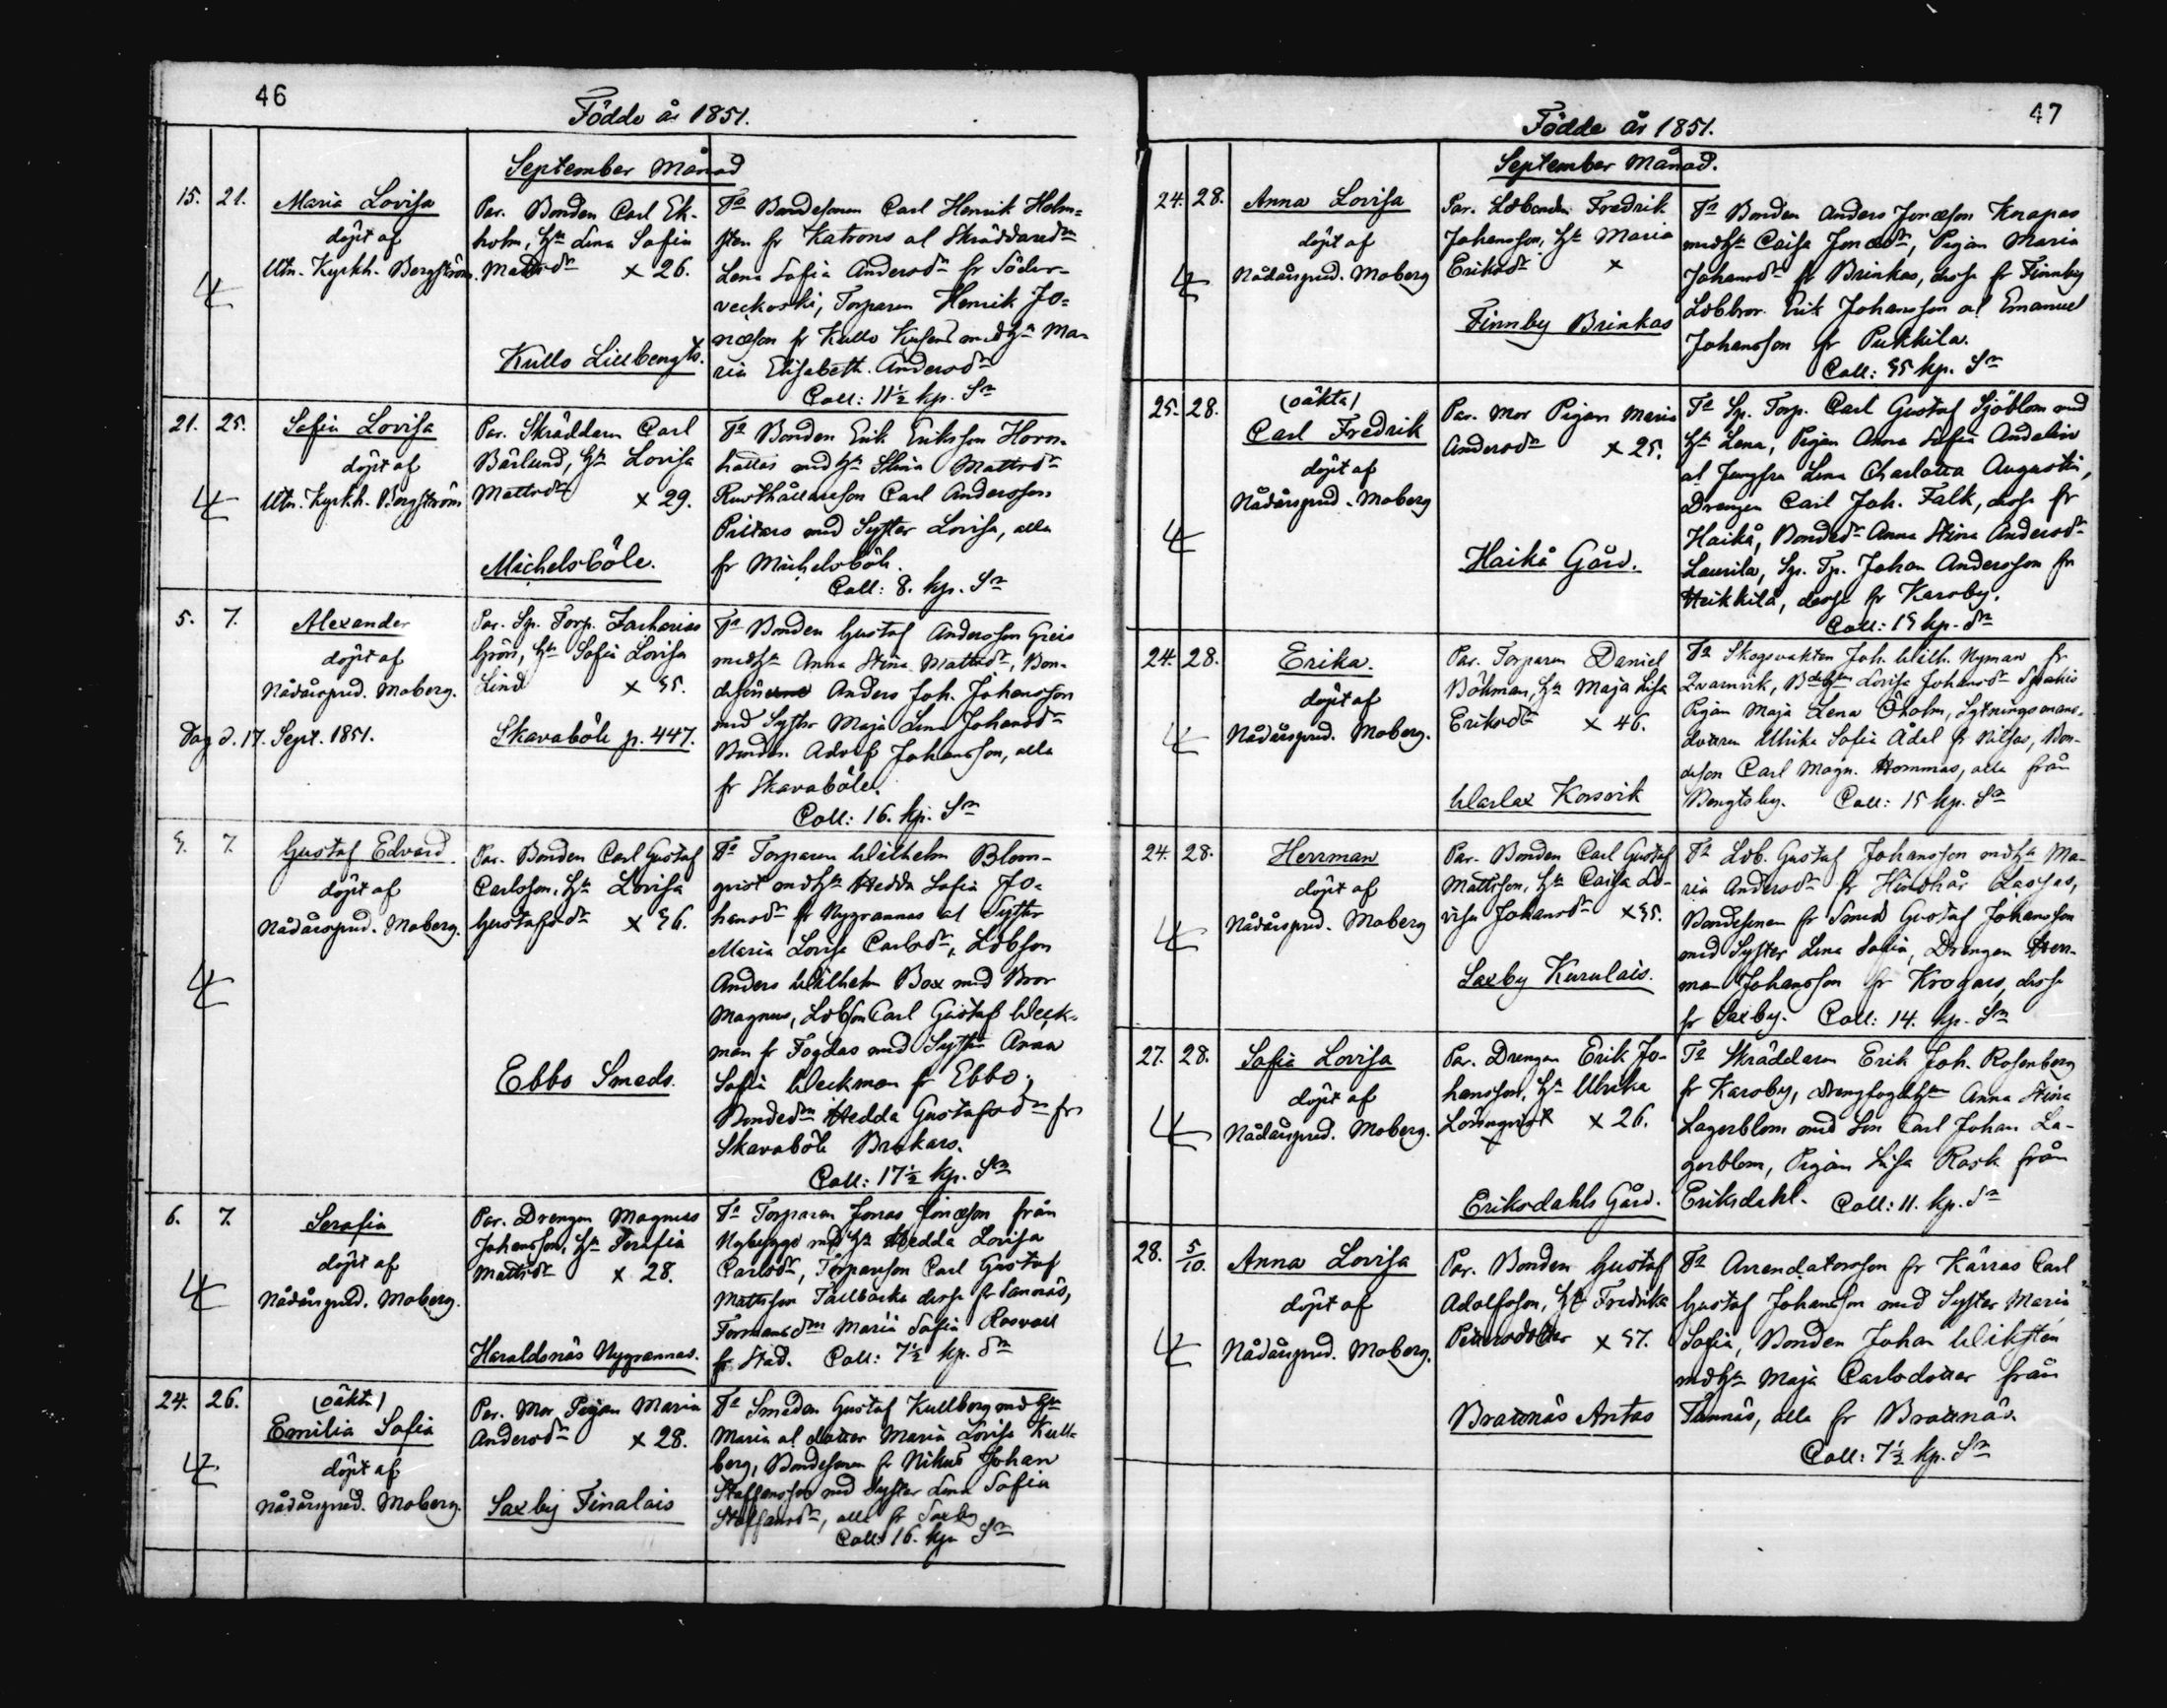 46
Födde år 1851.
September Månad
15. 21. Maria Lovisa
döpt af
Utn. Kyrkh. Bergström.
Par. Bonden Carl Ek-
holm, Hu Lena Sofia
Mattsdr x 26.
Kullo Lillbengts.
Fa Bondesonen Carl Henrik Holm-
sten fr Katrons al Skräddaredn
Lena Sofia Andersdr fr Söder-
veckoski, Torparen Henrik Jo-
næson fr Kullo med Hu Ma-
ria Elisabeth Andersdr
Coll: 11½ kp. Sr
21. 25. Sofia Lovisa
döpt af
Utn. Kyrkh. Bergström
Par. Skräddaren Carl
Bärlund, Hu Lovisa
Mattsdr x 29.
Michelsböle.
Fa Bonden Erik Eriksson Horn-
hattas med Hu Stina Mattsdr
Rusthållareson Carl Andersson
Pittars med Syster Lovisa, alla
fr Michelsböle.
Coll: 8. kp. Sr
5. 7. Alexander
döpt af
Nådårspred. Moberg.
Död d. 17. Sept. 1851.
Par. Sp. Torp. Zacharias
Grön, Hu Sofia Lovisa
Lind x 35.
Skavaböle p. 447.
Fa Bonden Gustaf Andersson Greis
med Hu Anna Stina Mattsdr, Bon-
desonen Anders Joh. Johansson
med Syster Maja Lena Johansdr
Bondes. Adolf Johansson, alla
fr Skavaböle.
Coll: 16. kp. Sr
3. 7. Gustaf Edvard
döpt af
Nådårspred. Moberg.
Par. Bonden Carl Gustaf
Carlsson, Hu Lovisa
Gustafsdr x 36.
Ebbo Smeds.
Fa Torparen Wilhelm Blom-
qvist med Hu Hedda Sofia Jo-
hansdr fr Nygrannas al Syster
Maria Lovisa Carlsdr, Ldbson
Anders Wilhelm Box med Bror
Magnus, Ldbson Carl Gustaf Weck-
man fr Fogdas med Syster Anna
Sofia Weckman fr Ebbo,
Bondedn Hedda Gustafsdr fr
Skavaböle Brokars.
Coll: 17½ kp. Sr
6. 7. Serafia
döpt af
Nådårspred. Moberg.
Par. Drengen Magnus
Johansson, Hu Serafia
Mattsdr x 28.
Haraldsnäs Nygrannas.
Fa Torparen Jonas Jonæson från
Nybygge med Hu Hedda Lovisa
Carlsdr, Torpareson Carl Gustaf
Mattsson Tallbacka desse fr Tannäs,
Formansdn Maria Sofia Rosvall
fr Stad. Coll: 7½ kp. Sr
24. 26. (oäkta)
Emilia Sofia
döpt af
Nådårspred. Moberg.
Par. Mor Pigan Maria
Andersdr x 28.
Saxby Finalais
Fa Smeden Gustaf Kullberg med Hu
Maria al dotter Maria Lovisa Kull-
berg, Bondesonen fr Nikus Johan
Staffansson med Syster Lena Sofia
Staffansdr, alla fr Saxby
Coll: 16. kp. Sr
47
Födde år 1851.
September Månad.
24. 28. Anna Lovisa
döpt af
Nådårspred. Moberg
Par. Ldbonden Fredrik
Johansson, Hu Maria
Eriksdr x
Finnby Brinkas
Fa Bonden Anders Jonæson Knapas
med Hu Caisa Jonædr, Pigan Maria
Johansdr fr Brinkas, desse fr Finnby
Ldbbror. Erik Johansson al Emanuel
Johansson fr Pukkila.
Coll: 35 kp. Sr
25. 28. (oäkta)
Carl Fredrik
döpt af
Nådårspred. Moberg
Par. Mor Pigan Maria
Andersdr x 25.
Haikå Gård.
Fa Sp. Torp. Carl Gustaf Sjöblom med
Hu Lena, Pigan Anna Sofia Andelin
al Jungfru Lena Charlotta Augustin,
Drengen Carl Joh. Falk, desse fr
Haikå, Bondedr Anna Stina Andersdr
Laurila, Sp. Tp. Johan Andersson fr
Heikkilä, desse fr Karsby.
Coll: 15 kp. Sr
24. 28. Erika.
döpt af
Nådårspred. Moberg.
Par. Torparen Daniel
Böhman, Hu Maja Lisa
Eriksdr x 46.
Warlax Korsvik
Fa Skogsvakten Joh. Wilh. Nyman fr
Qvarnvik, Lovisa Johansdr
Pigan Maja Lena Öholm, Sytningsmans-
dottren Ulrika Sofia Ådal fr Nilsas, Bon-
deson Carl Magn. Hommas, alla från
Bengtsby. Coll: 15 kp. Sr
24. 28. Herrman
döpt af
Nådårspred. Moberg
Par. Bonden Carl Gustaf
Mattsson, Hu Caisa Lo-
visa Johansdr x 35.
Saxby Kurulais.
Fa Ldb. Gustaf Johansson med Hu Ma-
ria Andersdr fr Hindhår Lassas,
Bondesonen fr Smed Gustaf Johansson
med Syster Lena Sofia, Drengen Herr-
man Johansson fr Krogars, desse
fr Saxby. Coll: 14. kp. Sr
27. 28. Sofia Lovisa
döpt af
Nådårspred. Moberg.
Par. Drengen Erik Jo-
hansson, Hu Ulrika
Lönnqvist x 26.
Eriksdahls Gård.
Fa Skräddaren Erik Joh. Rosenberg
fr Karsby, Anna Stina
Lagerblom med Son Carl Johan La-
gerblom, Pigan Lisa Rask från
Eriksdahl. Coll: 11. kp. Sr
28. 5/10. Anna Lovisa
döpt af
Nådårspred. Moberg.
Par. Bonden Gustaf
Adolfsson, Hu Fredrika
Pettersdotter x 37.
Brattnäs Antas
Fa Arrendatorsson fr Kärras Carl
Gustaf Johansson med Syster Maria
Sofia, Bonden Johan Wiksten
med Hu Maja Carlsdotter från
Tannäs, alla fr Brattnäs.
Coll: 7½ kp. Sr